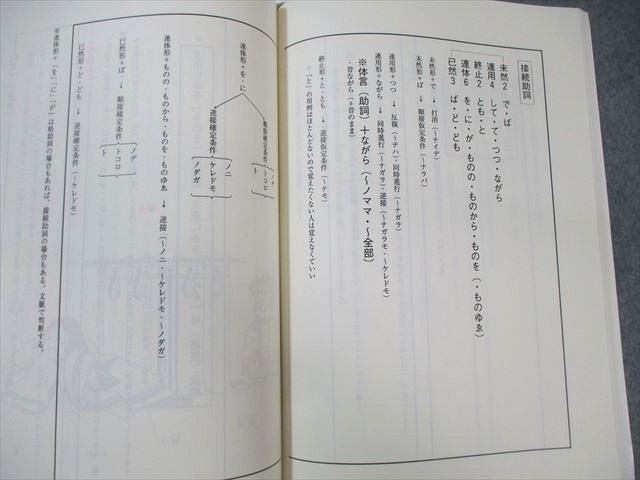 接続助詞
未然2 で・ば
連用4 して・て・つつ・ながら
終止2 とも・と
連体6 を・に・が・ものの・ものから・ものを（・ものゆゑ）
已然3 ば・ど・ども
未然形＋で → 打消（～ナイデ）
未然形＋ば → 順接仮定条件（～ナラバ）
連用形＋つつ → 反復（～テハ）・同時進行（～ナガラ）
連用形＋ながら → 同時進行（～ナガラ）・逆接（～ナガラモ・～ケレドモ）
※体言（助詞）＋ながら（～ノママ・～全部）
・昔ながら（＝昔のまま）
終止形＋と・とも → 逆接仮定条件（～テモ）
※「と」の用例はほとんどないので覚えたくない人は覚えなくていい
連体形＋を・に
順接確定条件 ～トコロ
ト
逆接確定条件 ～ケレドモ
ノニ
ノダガ
連体形＋ものの・ものから・ものを・ものゆゑ → 逆接（～ノニ・～ケレドモ・～ノダガ）
已然形＋ば → 順接確定条件 ～トコロ
ノデ
ト
已然形＋ど・ども → 逆接確定条件（～ケレドモ）
※連体形＋「を」「に」「が」は格助詞の場合もあれば、接続助詞の場合もある。文脈で判断する。